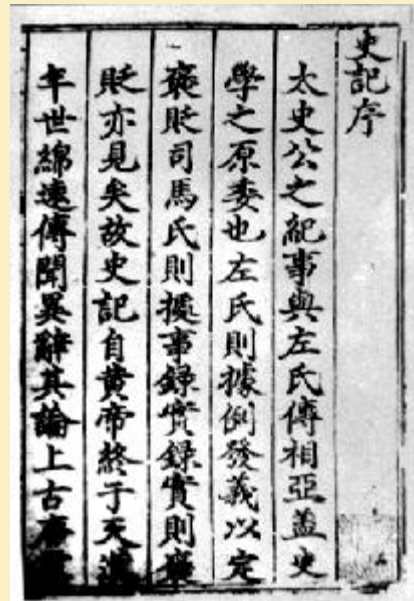 史記序
太史公之紀事與左氏傳相亞蓋史
學之原委也左氏則據例發義以定
褒貶司馬氏則摭事録實録實則褒
貶亦見矣故史記自黃帝終于天漢
年世綿遠傳聞異辭其論上古